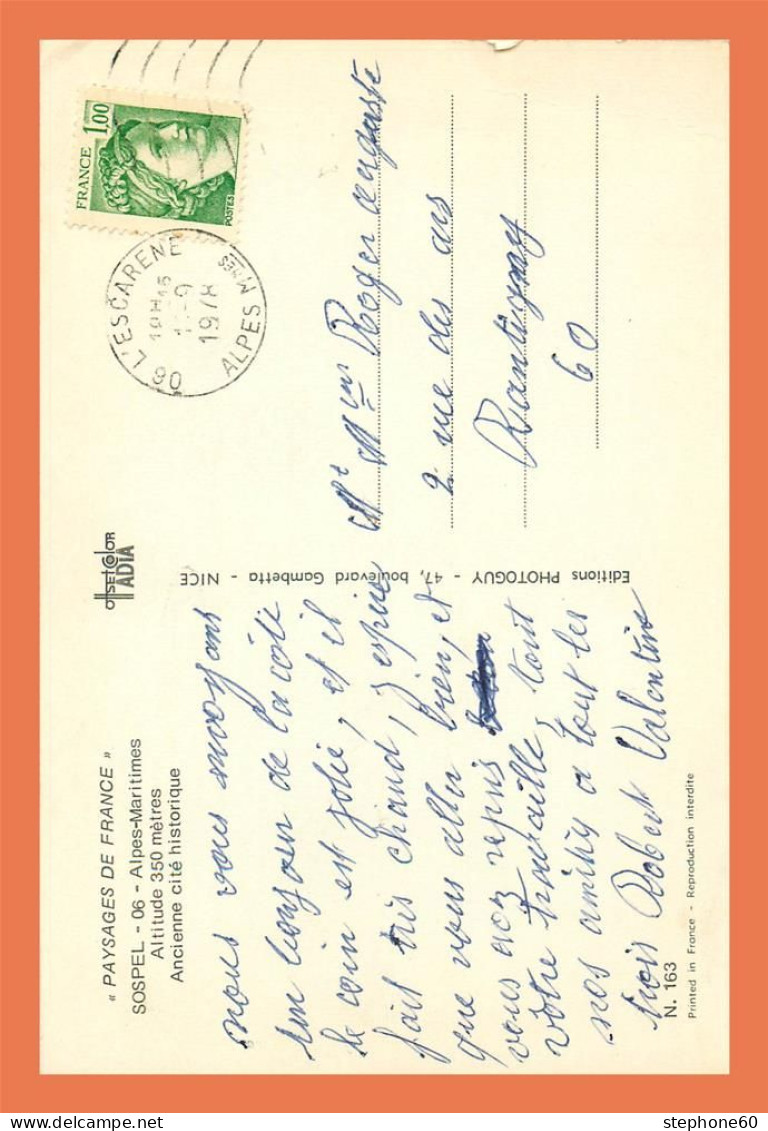 « PAYSAGES DE FRANCE »
SOSPEL - 06 - Alpes-Maritimes
Altitude 350 mètres
Ancienne cité historique
nous vous envoyons
un bonjour de la côte
le coin est jolie, et il
fait très chaud, j'espère
que vous aller bien, et
vous avez repris
votre travaille, tout
nos amitiés a tout les
trois Robert Valentine
N. 163
Printed in France - Reproduction interdite
OFFSETCOLOR
TADIA
Editions PHOTOGUY - 47, boulevard Gambetta - NICE
FRANCE 1,00
POSTES
06 L'ESCARENE
19H15
1978
ALPES MMES
Mr Mme Roger auguste
2 rue des
Rantigny
60
stephone60